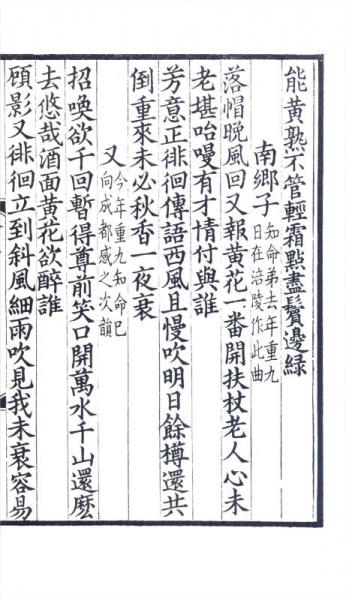 能黃熟不管輕霜點盡鬢邊緑
南鄉子知命弟去年重九
日在涪陵作此曲
落帽晚風回又報黃花一番開扶杖老人心未
老堪咍嘠有才情付與誰
芳意正徘徊傳語西風且慢吹明日餘樽還共
倒重來未必秋香一夜衰
又今年重九知命已
向成都感之次韻
招喚欲千回暫得尊前笑口開萬水千山還麽
去悠哉酒面黃花欲醉誰
顧影又徘徊立到斜風細雨吹見我未衰容易